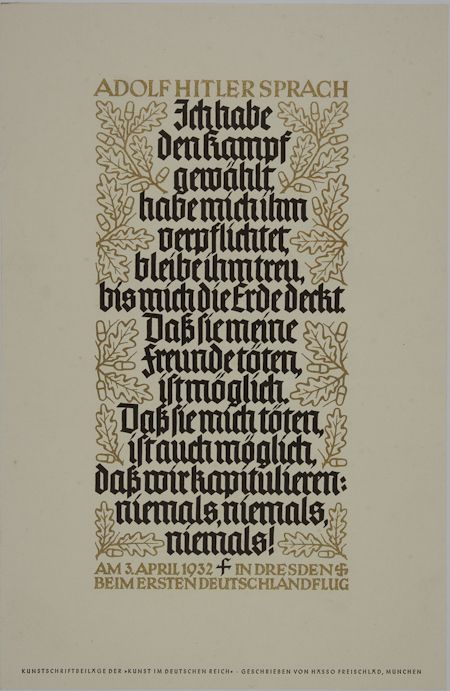 ADOLF HITLER SPRACH
Ich habe
den Kampf
gewählt,
habe mich ihm
verpflichtet,
bleibe ihm treu,
bis mich die Erde deckt.
Daß sie meine
Freunde töten,
ist möglich.
Daß sie mich töten,
ist auch möglich,
daß wir kapitulieren:
niemals, niemals,
niemals!
AM 3. APRIL 1932 IN DRESDEN
BEIM ERSTEN DEUTSCHLANDFLUG
KUNSTSCHRIFTBEILAGE DER »KUNST IM DEUTSCHEN REICH« - GESCHRIEBEN VON HASSO FREISCHLAD, MÜNCHEN